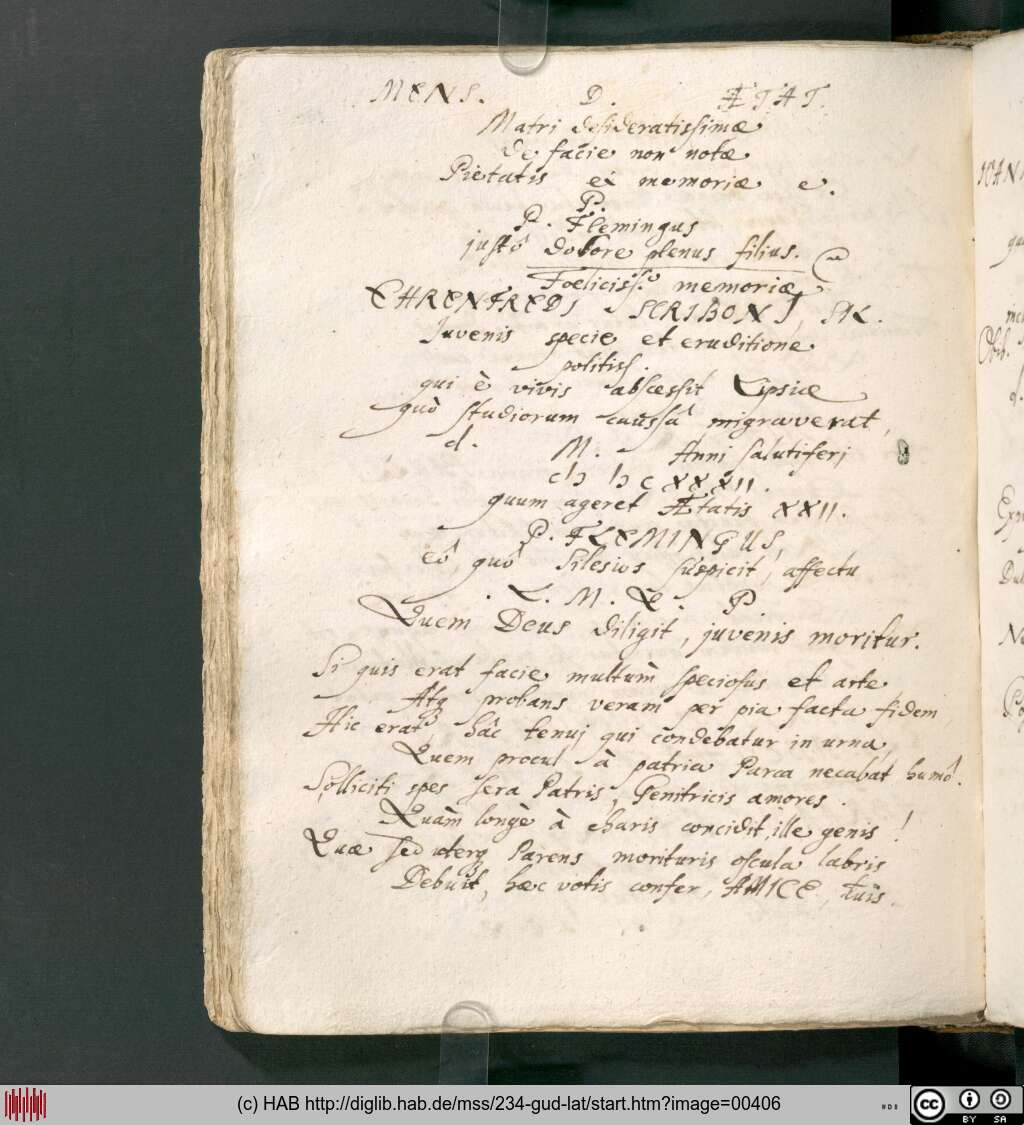 MENS. D. ÆTAT.
Matri desideratissimæ
de facie non notæ
Pietatis et memoriæ e.
P.
P. Flemingus
justô dolore plenus filius.
Foeliciss. memoriæ
EHRENFREDI SCRIBONI, SIL.
Juvenis specie et eruditione
politiss.
qui è vivis abscessit Lipsiæ
quò studiorum caussâ migraverat,
d. M. Anni salutiferi
cIↄ Iↄ c XXXII.
quum ageret Ætatis XXII.
P. FLEMINGUS,
eô, quô Silesios suspicit, affectu
L. M. Q. P.
Quem Deus diligit, juvenis moritur.
Si quis erat facie multùm speciosus et arte
Atq probans veram per pia facta fidem,
Hic erat, hâc tenuj qui condebatur in urna,
Quem procul à patria Parca necabat humô.
Solliciti spes sera Patris, Genitricis amores.
Quàm longè à charis concidit ille genis!
Quæ sed uterq Parens morituris oscula labris
Debuit, hæc votis confer, AMICE, tuis.
(c) HAB http://diglib.hab.de/mss/234-gud-lat/start.htm?image=00406
cc BY SA